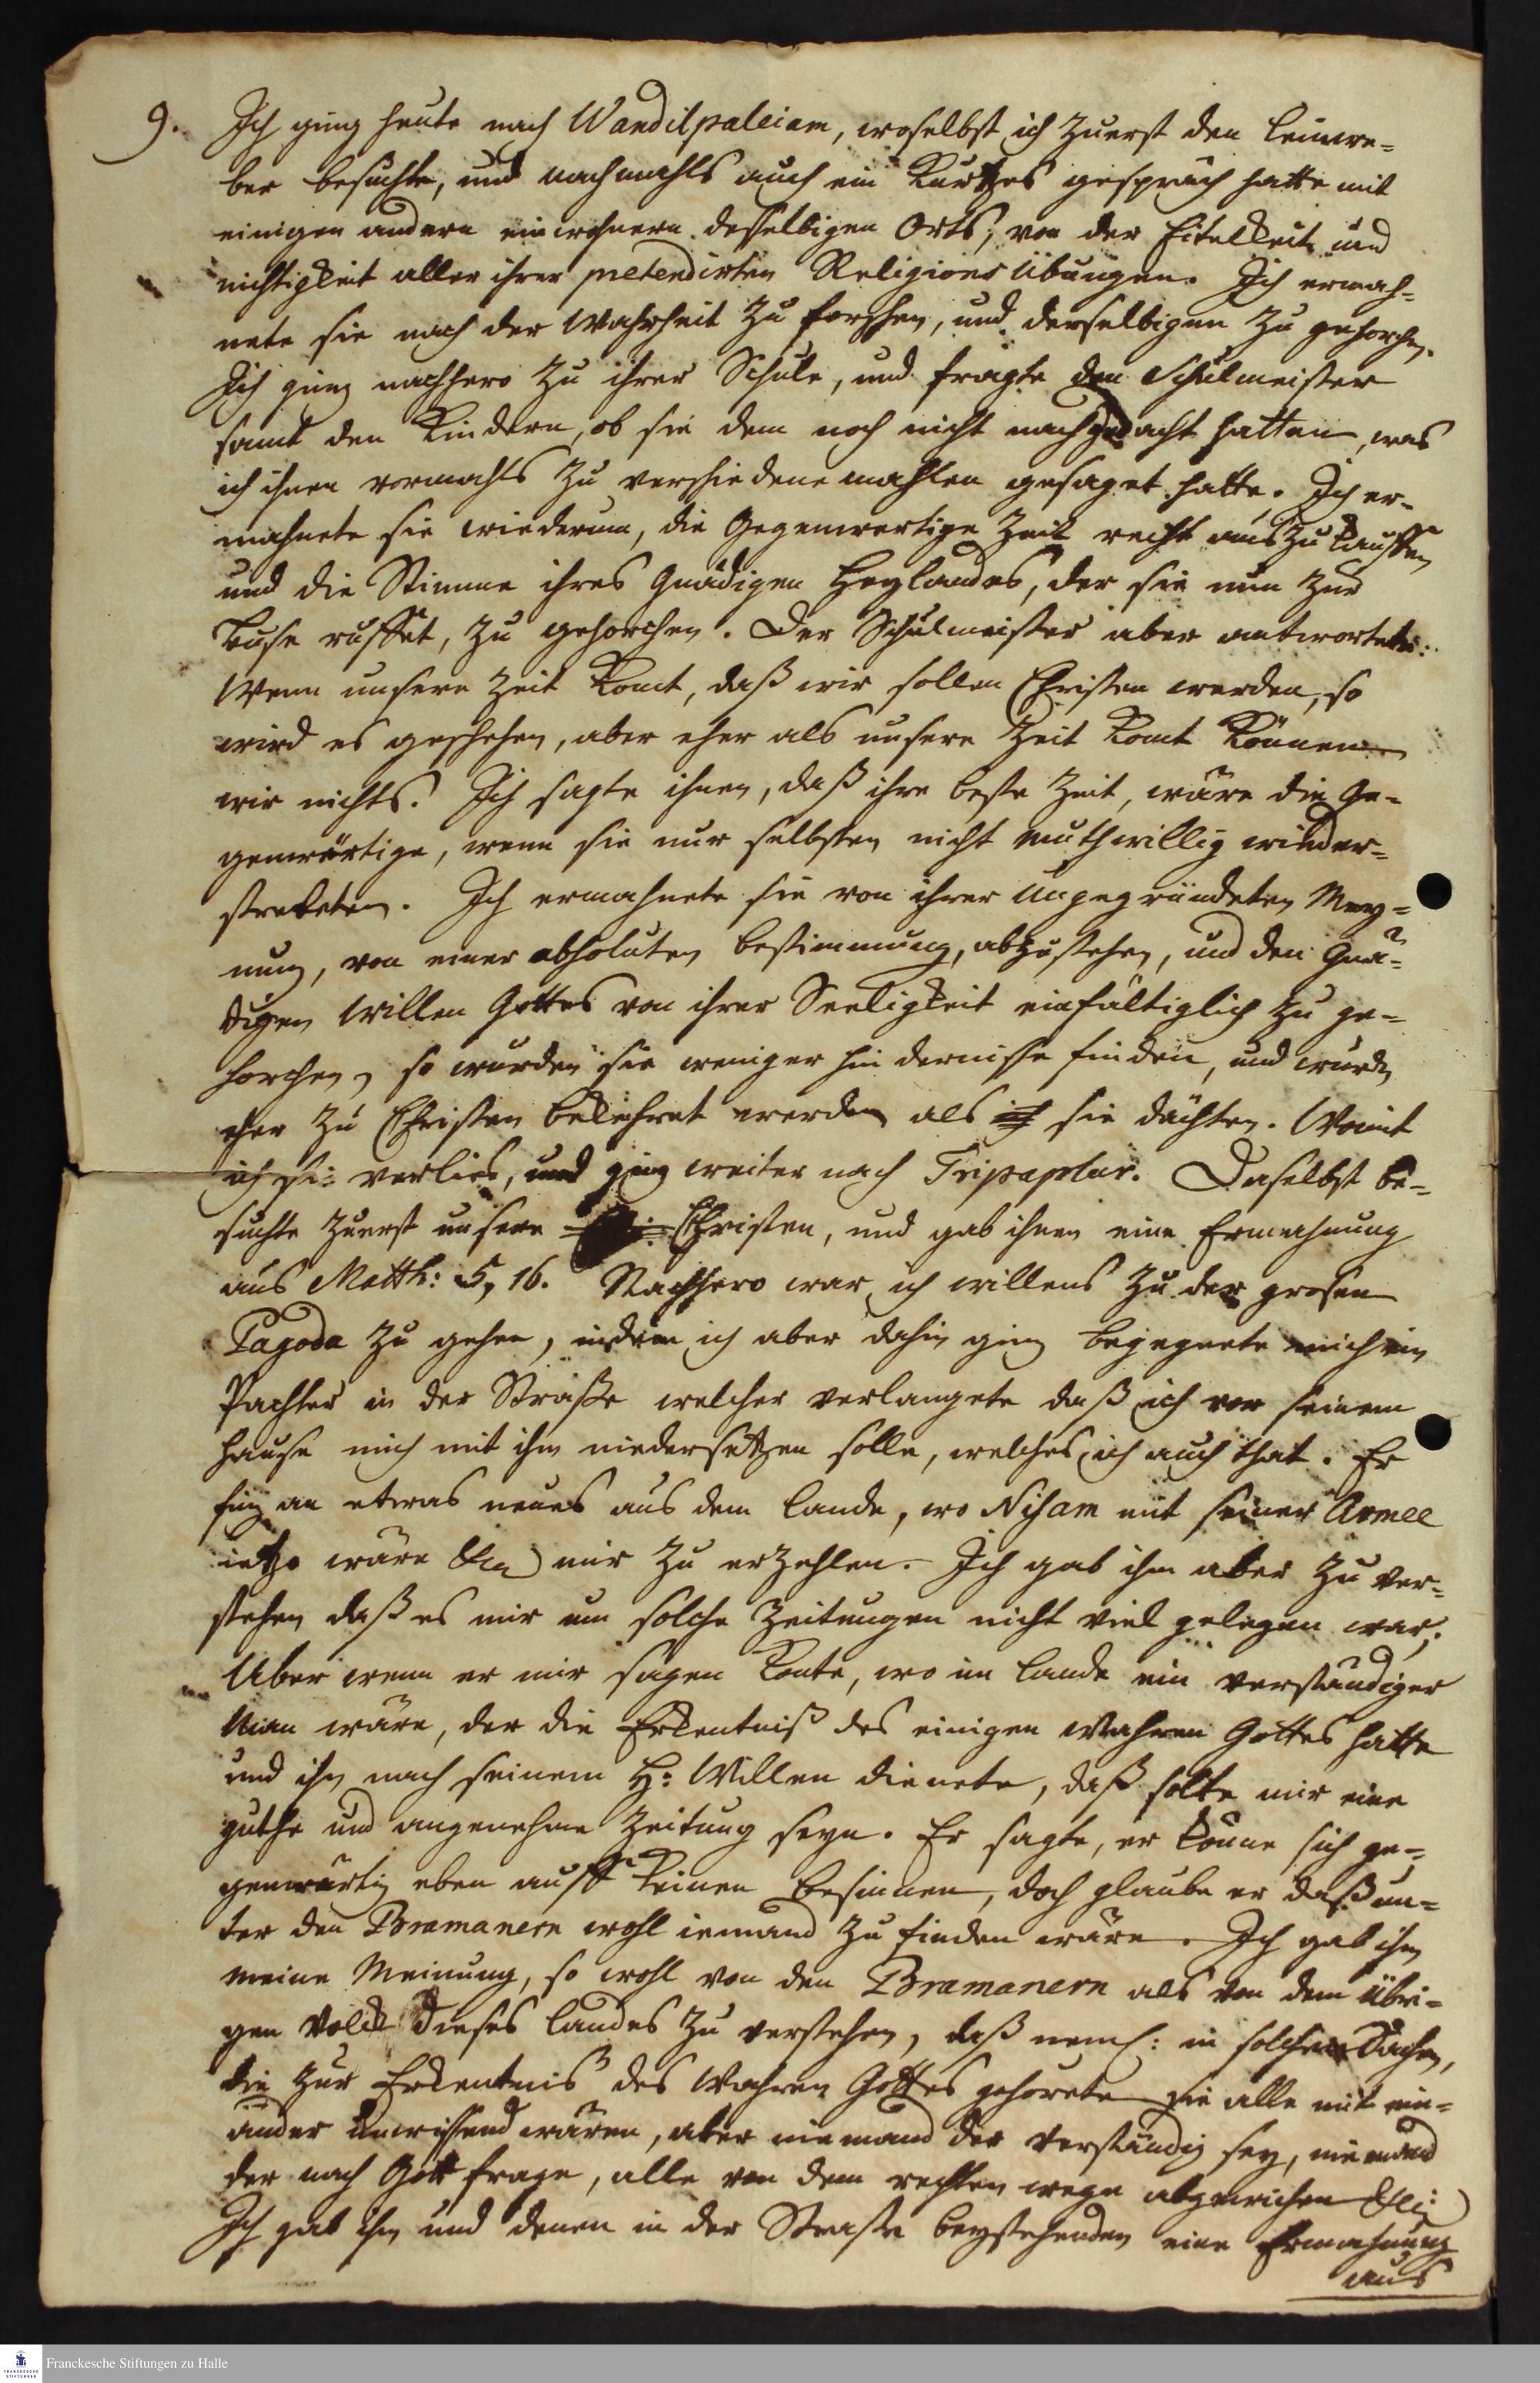 9. Ich ging heute nach Wandilpaleiam, woselbst ich zuerst den leinwe-
ber besuchte, und nachmahls auch ein Kurtzes gespräch hatte mit
einigen andern einwohnern desselbigen Orts, von der Eitelkeit und
nichtigkeit aller ihrer pretendirten Religions Übungen. Ich ermah-
nete sie nach der Wahrheit zu forschen, und derselbigen zu gehorchen.
Ich ging nachhero zu ihrer Schule, und fragte den Schulmeister
samt den Kindern, ob sie dem noch nicht nachgedacht hatten, was
ich ihnen vormahls zu verschiedene mahlen gesaget hatte. Ich er-
mahnete sie wiederum, die Gegenwertige Zeit recht auszukauffen
und die Stimme ihres Gnädigen Heylandes, der sie nun zur
Buse ruffet, zu gehorchen. Der Schulmeister aber antwortete:
Wenn unsere Zeit komt, daß wir sollen Christen werden, so
wird es geschehen, aber eher als unsere Zeit komt können
wir nichts. Ich sagte ihnen, daß ihre beste Zeit, wäre die Ge-
genwärtige, wenn sie nur selbsten nicht muthwillig wieder-
strebeten. Ich ermahnete sie von ihrer ungegründeten Mey-
nung, von einer absoluten bestimmung, abzustehen, und den Gnä-
digen Willen Gottes von ihrer Seeligkeit einfältiglich zu ge-
horchen, so würden sie weniger hindernisse finden, und würden
eher zu Christen bekehret werden als sie dächten. Womit
ich sie verlies, und ging weiter nach Tripaplur. Daselbst be-
suchte zuerst unsere Christen, und gab ihnen eine Ermahnung
aus Matth: 5, 16. Nachhero war ich willens zu der grosen
Pagoda zu gehen, indem ich aber dahin ging begegnete mich ein
Pachter in der Straße welcher verlangete daß ich vor seinem
Hause mich mit ihm niedersetzen solle, welches ich auch that. Er
fing an etwas neues aus dem Lande, wo Nisam mit seiner Armee
ietzo wäre &c mir zu erzehlen. Ich gab ihm aber zu ver-
stehen daß es mir um solche Zeitungen nicht viel gelegen war,
Aber wenn er mir sagen konte, wo im Lande ein verständiger
Man wäre, der die Erkentniß des einigen Wahren Gottes hatte
und ihn nach seinem H: Willen dienete, daß solte mir eine
guthe und angenehme Zeitung seyn. Er sagte, er könne sich ge-
genwärtig eben auff keinen besinnen, doch glaube er daß un-
ter den Bramanern wohl iemand zu finden wäre. Ich gab ihm
meine Meinung, so wohl von den Bramanern als von dem übri-
gen Volck dieses Landes zu verstehen, daß neml: in solchen Sachen,
die zur Erkentnis des Wahren Gottes gehörete sie alle mit ein-
ander unwissend wären, aber niemand der verständig sey, niemand
der nach Gott frage, alle von dem rechten wege abgewichen &c:
Ich gab ihm und denen in der Strasse beystehenden eine Ermahnung
aus
Franckesche Stiftungen zu Halle